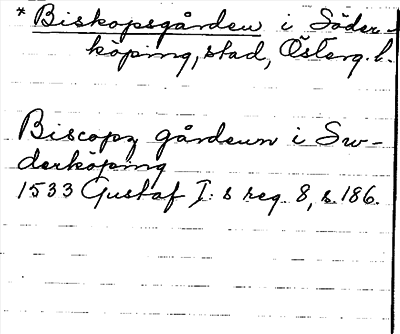 * Biskopsgården i Söder-
köping, stad, Österg. l.
Biscopz gårdenn i Sw-
derköping
1533 Gustaf I:s reg. 8, s. 186.